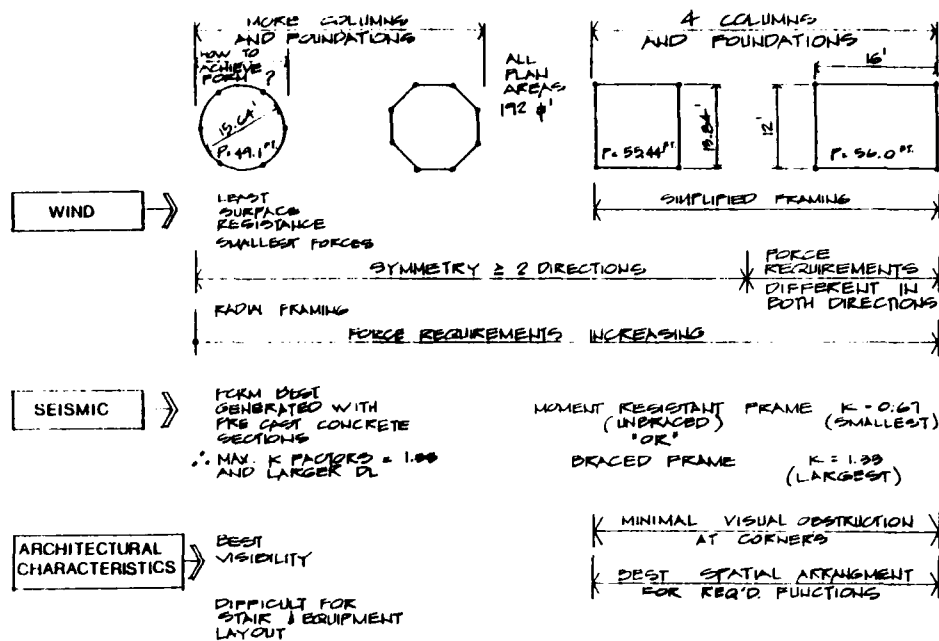 MORE COLUMNS
AND FOUNDATIONS
4 COLUMNS
AND FOUNDATIONS
HOW TO
ACHIEVE
FORM ?
ALL
PLAN
AREAS
192 ⌀'
16'
15.64'
P= 49.1 FT.
P= 55.44 FT.
13.84'
12'
P= 56.0 FT.
WIND
LEAST
SURFACE
RESISTANCE
SMALLEST FORCES
SIMPLIFIED FRAMING
SYMMETRY ≥ 2 DIRECTIONS
FORCE
REQUIREMENTS
DIFFERENT IN
BOTH DIRECTIONS
RADIAL FRAMING
FORCE REQUIREMENTS INCREASING
SEISMIC
FORM BEST
GENERATED WITH
PRE CAST CONCRETE
SECTIONS
∴ MAX. K FACTORS = 1.33
AND LARGER DL
MOMENT RESISTANT FRAME K = 0.67
(UNBRACED) (SMALLEST)
"OR"
BRACED FRAME K = 1.33
(LARGEST)
ARCHITECTURAL
CHARACTERISTICS
BEST
VISIBILITY
DIFFICULT FOR
STAIR & EQUIPMENT
LAYOUT
MINIMAL VISUAL OBSTRUCTION
AT CORNERS
BEST SPATIAL ARRANGMENT
FOR REQ'D. FUNCTIONS